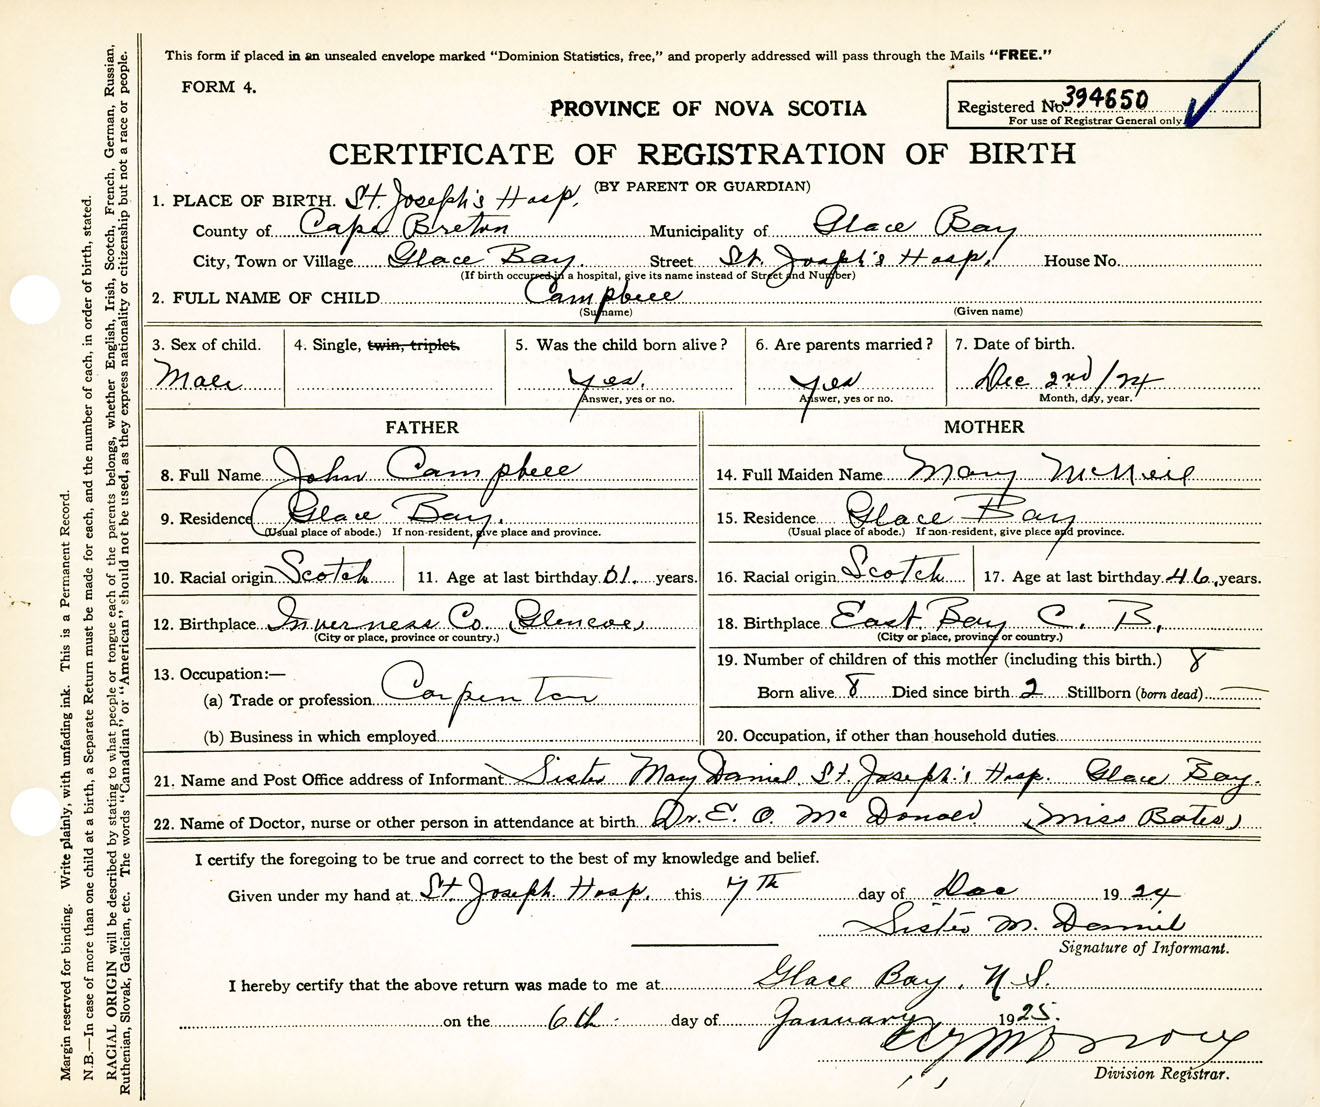 This form if placed in an unsealed envelope marked "Dominion Statistics, free," and properly addressed will pass through the Mails "FREE."
FORM 4.
PROVINCE OF NOVA SCOTIA
Registered No. 394650
For use of Registrar General only.
CERTIFICATE OF REGISTRATION OF BIRTH
(BY PARENT OR GUARDIAN)
1. PLACE OF BIRTH. St. Joseph's Hosp.
County of Cape Breton Municipality of Glace Bay
City, Town or Village Glace Bay. Street St. Joseph's Hosp. House No.
(If birth occurred in a hospital, give its name instead of Street and Number)
2. FULL NAME OF CHILD Campbell
(Surname) (Given name)
3. Sex of child. 4. Single, twin, triplet. 5. Was the child born alive? 6. Are parents married? 7. Date of birth.
Male yes. yes Dec 2nd/24
Answer, yes or no. Answer, yes or no. Month, day, year.
FATHER
8. Full Name John Campbell
9. Residence Glace Bay.
(Usual place of abode.) If non-resident, give place and province.
10. Racial origin Scotch 11. Age at last birthday years.
12. Birthplace Inverness Co. (Glencoe)
(City or place, province or country.)
13. Occupation:—
(a) Trade or profession Carpenter
(b) Business in which employed
MOTHER
14. Full Maiden Name Mary McNeil
15. Residence Glace Bay
(Usual place of abode.) If non-resident, give place and province.
16. Racial origin Scotch 17. Age at last birthday 46 years.
18. Birthplace East Bay C. B.
(City or place, province or country.)
19. Number of children of this mother (including this birth.) 8
Born alive 8 Died since birth 2 Stillborn (born dead) —
20. Occupation, if other than household duties
21. Name and Post Office address of Informant Sister Mary Daniel, St. Joseph's Hosp. Glace Bay.
22. Name of Doctor, nurse or other person in attendance at birth Dr. E. O. McDonald (Miss Bates)
I certify the foregoing to be true and correct to the best of my knowledge and belief.
Given under my hand at St. Joseph Hosp. this 7th day of Dec 1924
Sister M. Daniel
Signature of Informant.
I hereby certify that the above return was made to me at Glace Bay, N.S.
on the 6th day of January 1925.
Division Registrar.
Margin reserved for binding. Write plainly, with unfading ink. This is a Permanent Record.
N.B.—In case of more than one child at a birth, a Separate Return must be made for each, and the number of each, in order of birth, stated.
RACIAL ORIGIN will be described by stating to what people or tongue each of the parents belongs, whether English, Irish, Scotch, French, German, Russian,
Ruthenian, Slovak, Galician, etc. The words "Canadian" or "American" should not be used, as they express nationality or citizenship but not a race or people.